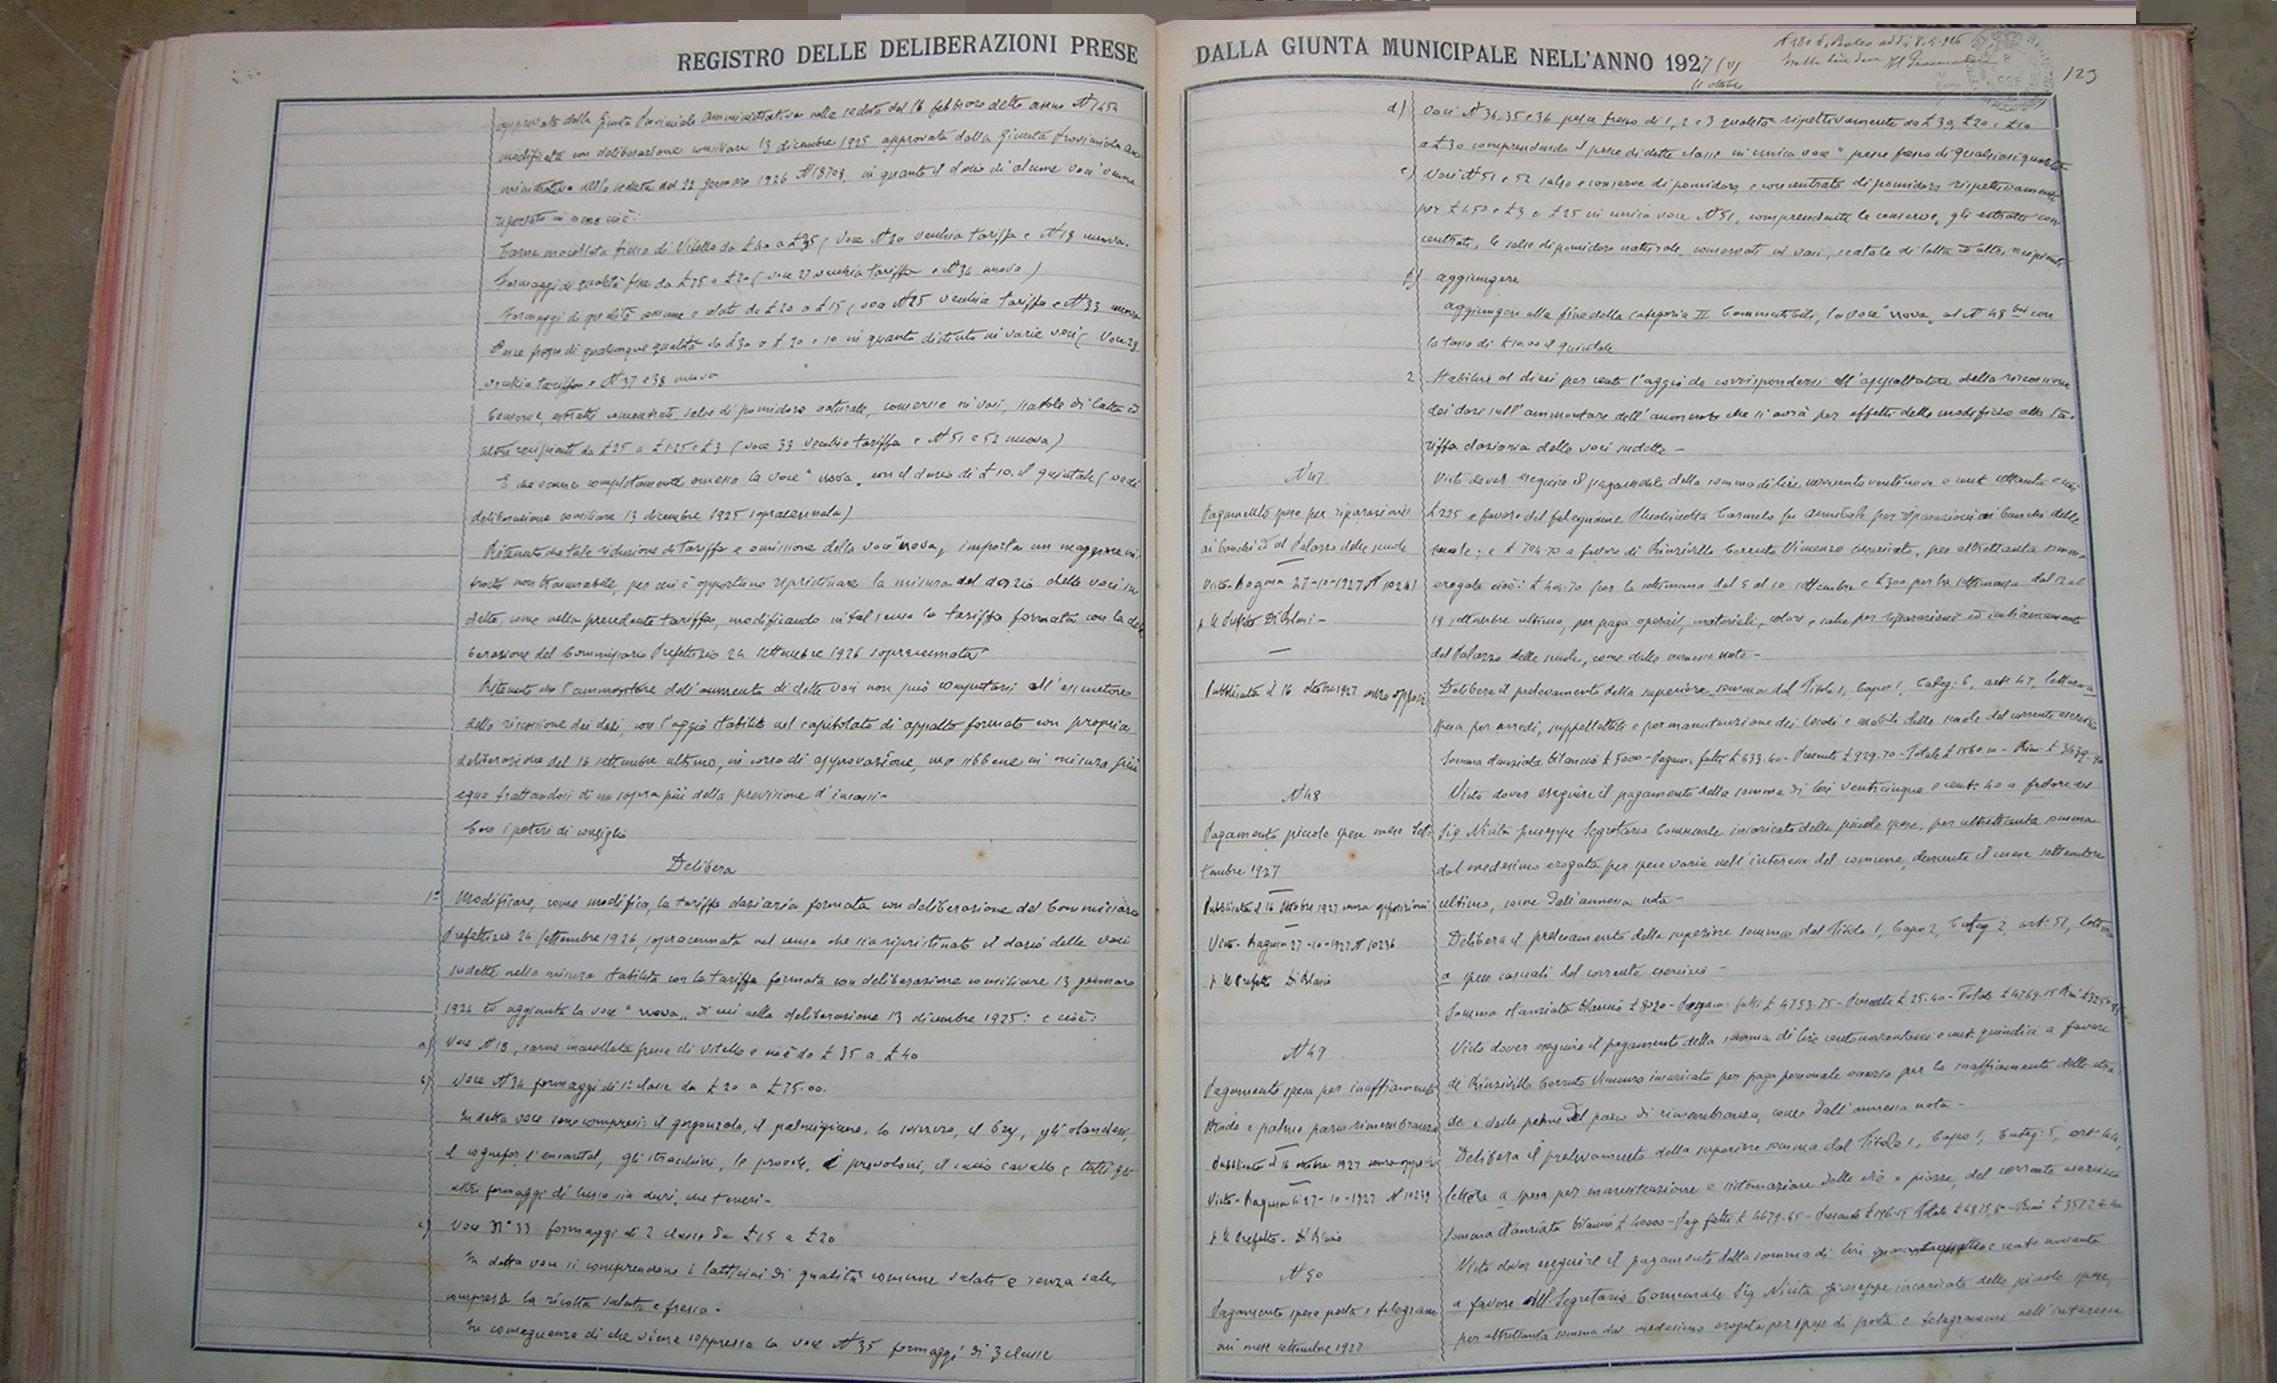 REGISTRO DELLE DELIBERAZIONI PRESE
approvata dalla Giunta Provinciale Amministrativa nella seduta del 16 febbraio detto anno N
modificata con deliberazione consiliare 13 dicembre 1925 approvata dalla Giunta Provinciale Am
ministrativa nella seduta del 22 gennaio 1926 N 18708, in quanto il dazio di alcune voci venne
riportato in meno cioè:
Carne macellata fresca di Vitello da £ 40 a £ 35 (voce N 20 vecchia tariffa e N 18 nuova.
Formaggi di qualità fine da £ 25 a £ 20 (voce 27 vecchia tariffa e N 34 nuova)
Formaggi di qualità comune e salati da £ 20 a £ 15 (voce N 25 vecchia tariffa e N 33 nuova
Pesce fresco di qualunque qualità da £ 30 a £ 20 e 10 in quanto distinto in varie voci (Voce 29
vecchia tariffa e N 37 e 38 nuova
Conserve, estratti concentrati, salse di pomidoro naturale, conserve in vasi, scatole di latta ed
altri recipienti da £ 25 a £ 1.25 e £ 3 (voce 33 vecchia tariffa e N 51 e 52 nuova)
E che venne completamente omessa la voce "uova" con il dazio di £ 10. il quintale (vedi
deliberazione consiliare 13 dicembre 1925 sopracennata)
Ritenuto che tale riduzione di tariffa e omissione della voce "uova" importa un maggiore in
troito non trascurabile, per cui è opportuno ripristinare la misura del dazio delle voci su
dette, come nella precedente tariffa, modificando in tal senso la tariffa formata con la deli
berazione del Commissario Prefettizio 24 settembre 1926 sopracennata
Ritenuto che l'ammontare dell'aumento di dette voci non può computarsi all'esattore
della riscossione dei dazi, con l'aggio stabilito nel capitolato di appalto formato con propria
deliberazione del 16 settembre ultimo, in corso di approvazione, ma sibbene in misura più
equa trattandosi di un sopra più della previsione d'incassi -
Coi poteri di consiglio
Delibera
1° Modificare, come modifica, la tariffa daziaria formata con deliberazione del Commissario
Prefettizio 24 settembre 1926, sopracennata nel senso che sia ripristinato il dazio delle voci
sudette nella misura stabilita con la tariffa formata con deliberazione consiliare 13 gennaio
1926 ed aggiunta la voce "uova" di cui nella deliberazione 13 dicembre 1925: e cioè:
a) Voce N 18, carne macellata fresca di vitello e cioè da £ 35 a £ 40
b) Voce N 34 formaggi di 1ª classe da £ 20 a £ 25.00.
In detta voce sono compresi: il gorgonzola, il parmigiano, lo svizzero, il bry, gli olandesi,
il roquefor, l'emmental, gli stracchini, le provole, i provoloni, il cacio cavallo e tutti gli
altri formaggi di lusso sia duri, che teneri -
c) Voce N° 33 formaggi di 2 classe da £ 15 a £ 20
In detta voce si comprendono i latticini di qualità comune salati e senza sale,
compresa la ricotta salata e fresca -
In conseguenza di che viene soppressa la voce N 35 formaggi di 3 classe
DALLA GIUNTA MUNICIPALE NELL'ANNO 1927 (V)
11 ottobre
129
d) Voci N 34, 35 e 36 pesce fresco di 1, 2 e 3 qualità rispettivamente da £ 30, £ 20 e £ 10
a £ 30 comprendendo il pesce di dette classi in unica voce "pesce fresco di qualsiasi qualità
e) Voci N 51 e 52 salse e conserve di pomidoro e concentrato di pomidoro rispettivamente
per £ 1.50 e £ 3 a £ 25 in unica voce N 51, comprendente le conserve, gli estratti con
centrati, le salse di pomidoro naturale, conservati in vasi, scatole di latta ed altri recipienti
f) aggiungere
aggiungere alla fine della categoria II Commestibili, la voce "uova" al N 48 bis con
la tassa di £ 10.00 il quintale
2 Stabilire al dieci per cento l'aggio da corrispondersi all'appaltatore della riscossione
dei dazi sull'ammontare dell'aumento che si avrà per effetto delle modifiche alla ta-
riffa daziaria delle voci sudette -
N 47
Pagamento spese per riparazioni
ai banchi ed al Palazzo delle scuole
Visto - Ragusa 27-10-1927 N 10241
p. Il Prefetto Di Blasi -
Pubblicata il 16 ottobre 1927 senza opposiz
Visto dover eseguire il pagamento della somma di lire novecentoventinove e cent. settanta e cioè
£ 225 a favore del falegname Carmelo fu Annibale per riparazioni ai banchi delle
scuole; e £ 704.70 a favore di Rinzivillo Corrente Vincenzo incaricato, per altrettanta somma
erogata cioè: £ 404.70 per la settimana dal 5 al 10 settembre e £ 300 per la settimana dal 12 al
18 settembre ultimo, per paga operai, materiali, colori e calce per riparazioni ed imbiancamento
del Palazzo delle scuole, come dalle annesse note -
Delibera il prelevamento della superiore somma dal Titolo 1, Capo 1, Categ: 6, art 47, lettera a
spesa per arredi, suppellettili e per manutenzione dei locali e mobili delle scuole del corrente esercizio
Somma stanziata bilancio £ 5000 - Pagam. fatti £ 633.40 - Presente £ 929.70 - Totale £ 1560.10 - Rim. £ 3439.90
N 48
Pagamento piccole spese mese Set-
tembre 1927
Pubblicata il 16 ottobre 1927 senza opposizioni
Visto - Ragusa 27-10-1927 N 10236
p. Il Prefetto Di Blasio
Visto dover eseguire il pagamento della somma di lire venticinque e cent. 40 a favore del
Sig Nicita Giuseppe Segretario Comunale incaricato delle piccole spese, per altrettanta somma
dal medesimo erogata per spese varie nell'interesse del comune, durante il mese settembre
ultimo, come dall'annessa nota -
Delibera il prelevamento della superiore somma dal Titolo 1, Capo 2, Categ 2 art: 51, lettera
a spese casuali del corrente esercizio -
Somma stanziata bilancio £ 8020 - Pagam. fatti £ 4753.75 - Presente £ 25.40 - Totale £ 4769.15 Rim £ 3250.85
N 49
Pagamento spesa per inaffiamento
strade e palme parco rimembranza
Pubblicata il 16 ottobre 1927 senza opposiz
Visto - Ragusa li 27-10-1927 N 10239
p. Il Prefetto - Di Blasio
Visto dover eseguire il pagamento della somma di lire centonovantasei e cent. quindici a favore
di Rinzivillo Corrente Vincenzo incaricato per paga personale occorso per lo inaffiamento delle stra
de e delle palme del parco di rimembranza, come dall'annessa nota -
Delibera il prelevamento della superiore somma dal Titolo 1, Capo 1, Categ: 5, art: 44,
lettera a spesa per manutenzione e sistemazione delle vie e piazze, del corrente esercizio
Somma stanziata bilancio £ 40000 - Pag. fatti £ 4679.45 - Presente £ 196.15 Totale £ 4875,60 - Rim £ 35124.40
N 50
Pagamento spese posta e telegrammi
nel mese settembre 1927
Visto dover eseguire il pagamento della somma di lire quarantaquattro e cent. novanta
a favore del Segretario Comunale Sig Nicita Giuseppe incaricato delle piccole spese,
per altrettanta somma dal medesimo erogata per spese di posta e telegrammi nell'interesse